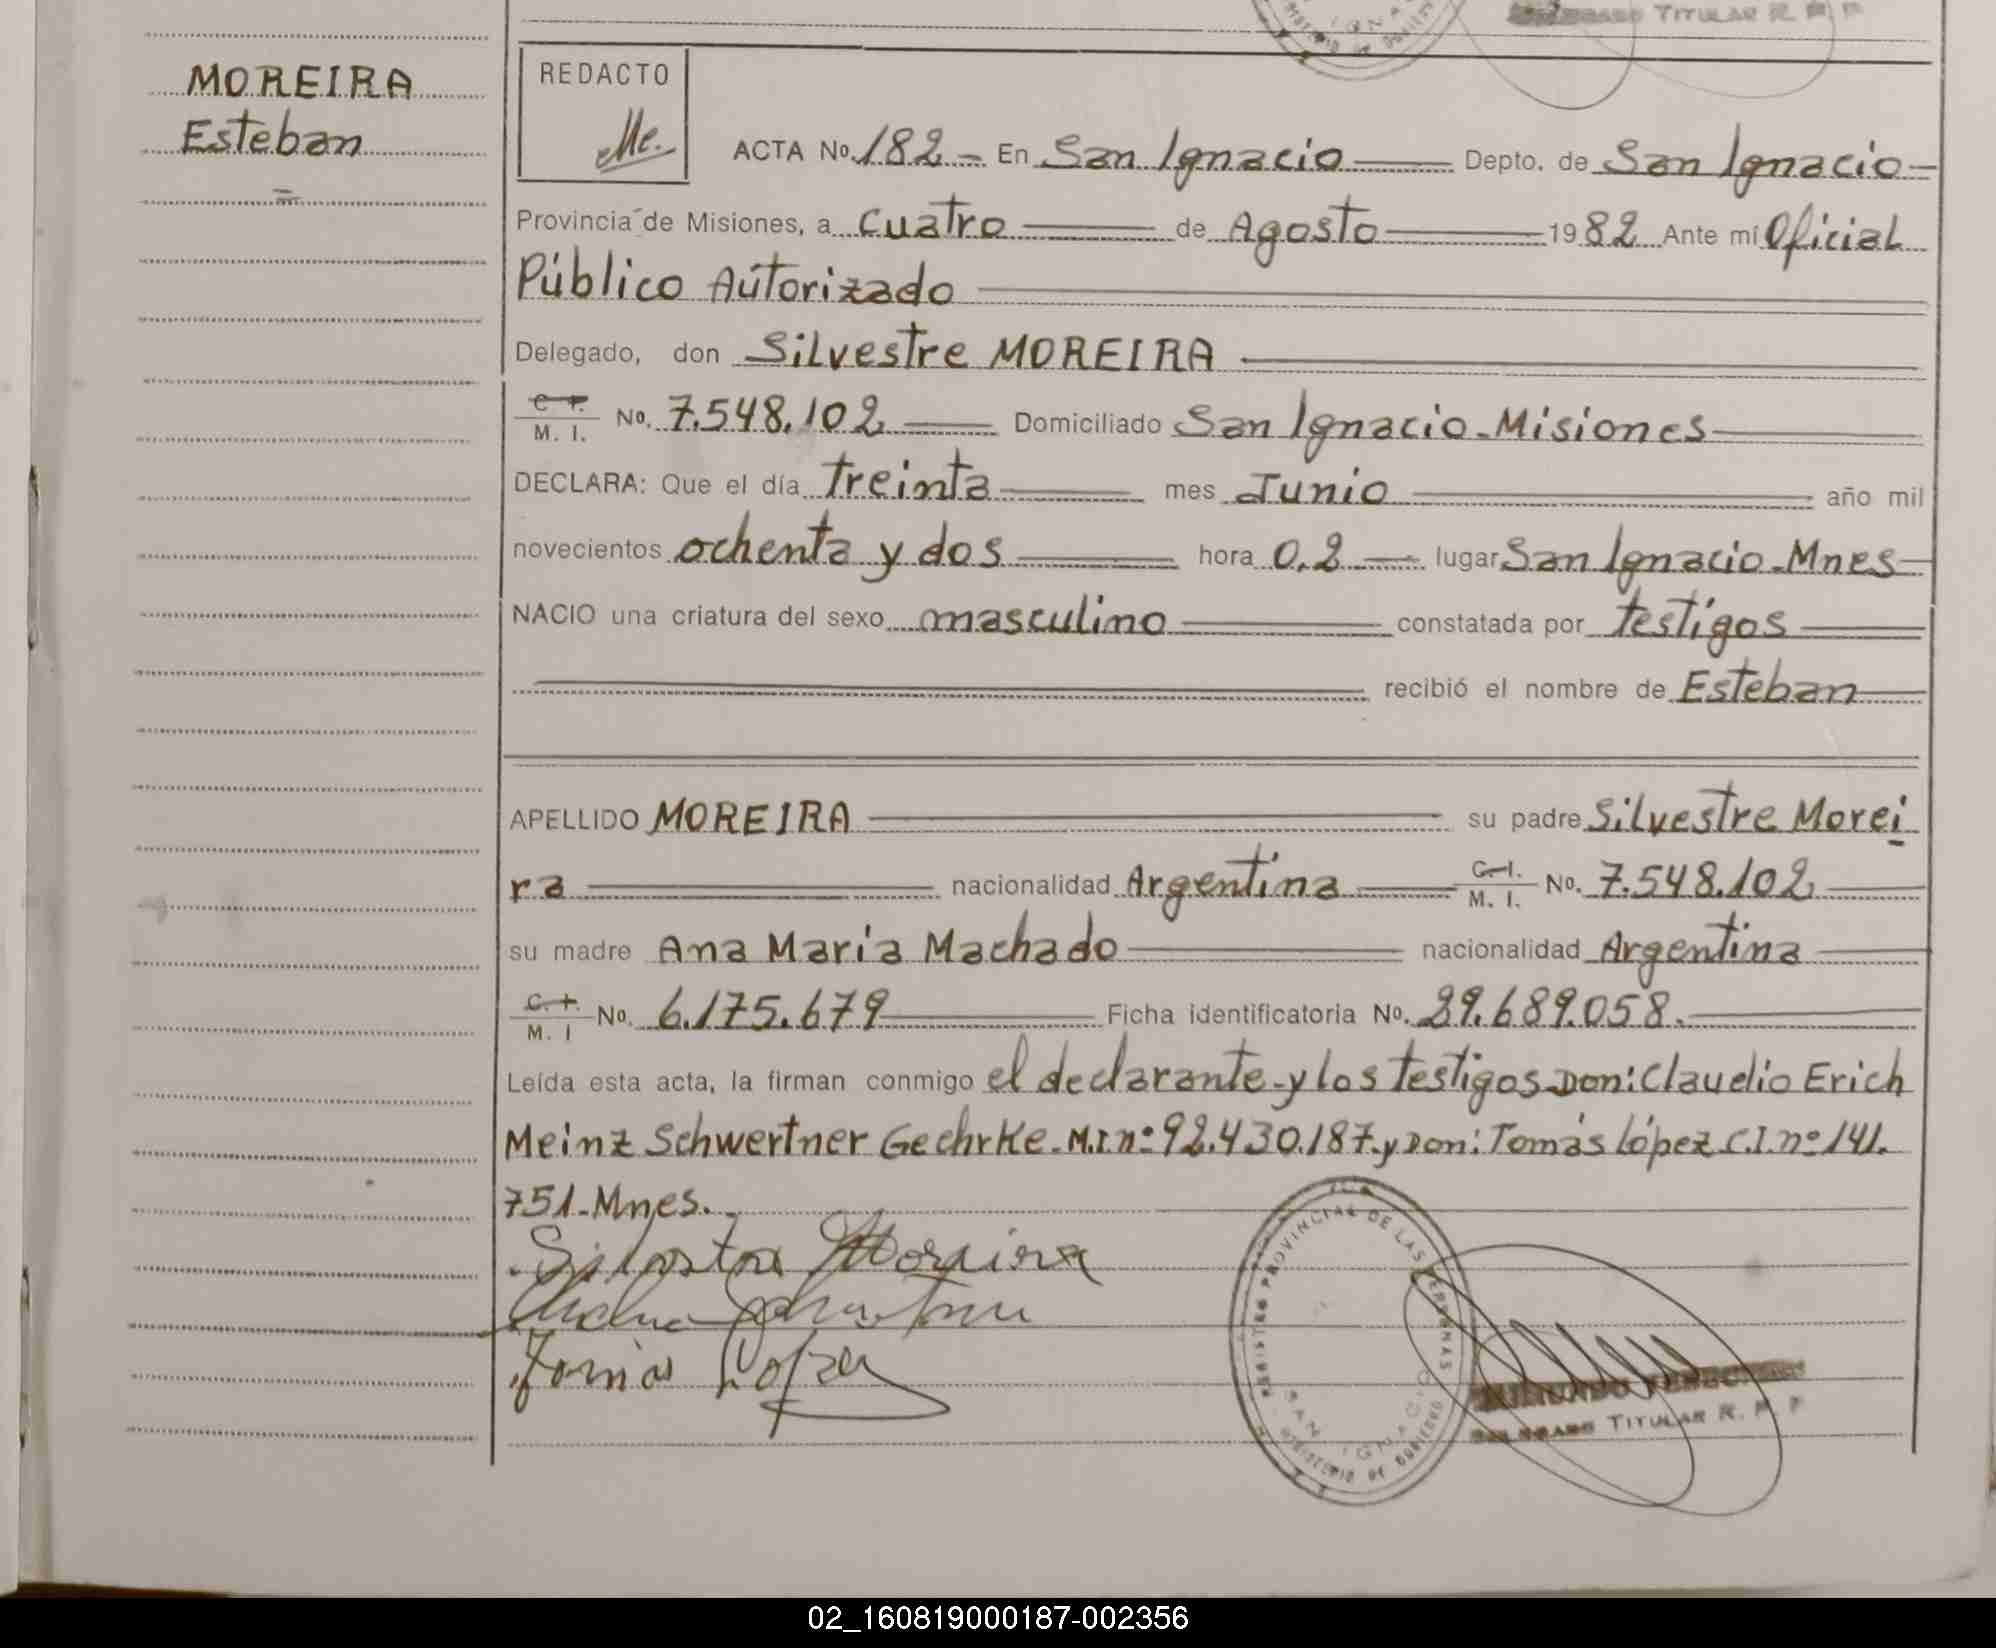 TITULAR R. P. P
MOREIRA
Esteban
REDACTO
ACTA No. 182 - En San Ignacio Depto. de San Ignacio
Provincia de Misiones, a cuatro de Agosto 1982 Ante mí Oficial
Público Autorizado
Delegado, don Silvestre MOREIRA
C. I. / M. I. No. 7.548.102 Domiciliado San Ignacio - Misiones
DECLARA: Que el día treinta mes Junio año mil
novecientos ochenta y dos hora 0,2 lugar San Ignacio - Mnes
NACIO una criatura del sexo masculino constatada por testigos
recibió el nombre de Esteban
APELLIDO MOREIRA su padre Silvestre Morei
ra nacionalidad Argentina C. I. / M. I. No. 7.548.102
su madre Ana María Machado nacionalidad Argentina
C. I. / M. I No. 6.175.679 Ficha identificatoria No. 29.689.058.
Leída esta acta, la firman conmigo el declarante - y los testigos Don: Claudio Erich
Meinz Schwertner Gechrke - M.I. nº 92.430.187 - y Don: Tomás López C.I. nº 141.
751 - Mnes. -
Silvestre Moreira
Tomás López
REGISTRO PROVINCIAL DE LAS PERSONAS
SAN IGNACIO
MINISTERIO DE GOBIERNO
TITULAR R. P. P
02_160819000187-002356